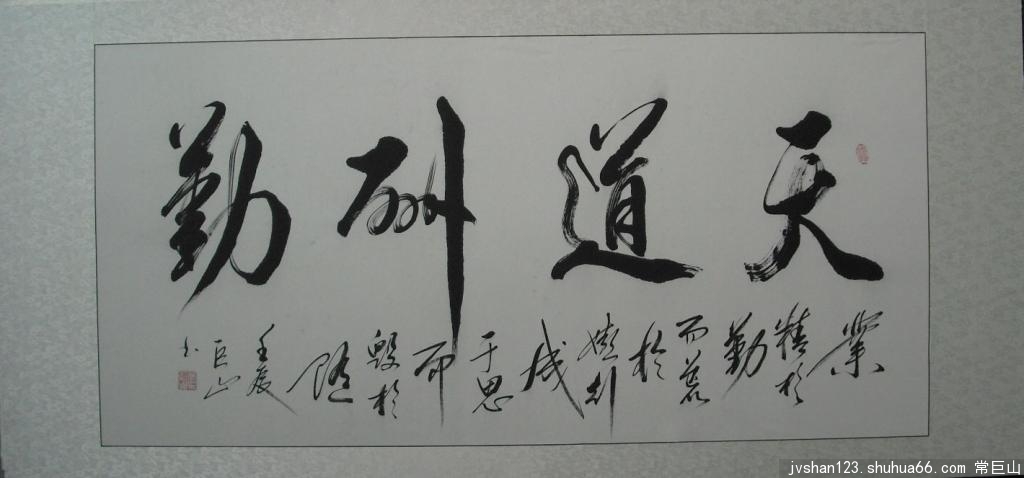 天道酬勤
業精於勤而荒於嬉行成于思而毀於隨
壬辰巨山书
jvshan123.shuhua66.com 常巨山